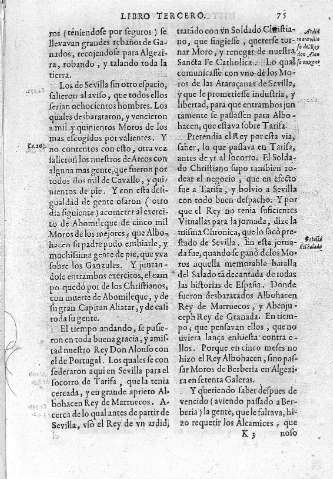 LIBRO TERCERO. 75
ros (teniendose por seguros) se
llevavan grandes rebaños de Ga-
nados, recogiendose para Algezi-
ra, robando, y talando toda la
tierra.
Los de Sevilla sin otro espacio,
salieron al aviso, que todos ellos
serian ochocientos hombres. Los
quales desbarataron, y vencieron
a mil y quinientos Moros de los
mas escogidos por valientes. Y
no contentos con esto, otra vez
salieron los nuestros de Arcos con
alguna mas gente, que fueron por
todos dos mil de Cavallo, y qui-
nientos de pie. Y con esta desi-
gualdad de gente osaron (otro
dia siguiente) acometer al exerci-
to de Abomileque de cinco mil
Moros de los mejores, que Albo-
hacen su padre pudo embiarle, y
muchissima gente de pie, que yva
sobre los Ganzules. Y juntan-
dose entrambos exercitos, el cam-
po quedó por de los Christianos,
con muerte de Abomileque, y de
su gran Capitan Alhatar, y de casi
toda su gente.
El tiempo andando, se pusie-
ron en toda buena gracia, y amis-
tad nuestro Rey Don Alonso con
el de Portugal. Los quales se con-
federaron aqui en Sevilla para el
socorro de Tarifa, que la tenia
cercada, y en grande aprieto Al-
bohacen Rey de Marruecos. A-
cerca de lo qual antes de partir de
Sevilla, usó el Rey de un ardid,
tratado con un Soldado Christia-
no, que fingiesse, quererse tor-
nar Moro, y renegar de nuestra
Sancta Fe Catholica. Lo qual
comunicasse con uno de los Mo-
ros de las Ataraçanas de Sevilla,
y que le prometiesse industria, y
libertad, para que entrambos jun-
tamente se passassen para Albo-
hacen, que estava sobre Tarifa.
Pretendia el Rey por esta via,
saber, lo que passava en Tarifa,
antes de yr al socorro. El Solda-
do Christiano supo tambien ro-
dear el negocio, que en efecto
fue a Tarifa, y bolvio a Sevilla
con todo buen despacho. Y por
que el Rey no tenia suficientes
Vituallas para la jornada, dize la
misma Chronica, que lo sacó pre-
stado de Sevilla. En esta jorna-
da fue, quando se ganó de los Mo-
ros aquella memorable batalla
del Salado tã decantada de todas
las historias de España. Donde
fueron desbaratados Albohacen
Rey de Marruecos, y Abenju-
ceph Rey de Granada. En tiem-
po, que pensavan ellos, que no
uviera lança enhiesta contra e-
llos. Porque en cinco meses no
hizo el Rey Albohacen, sino pas-
sar Moros de Berberia en Algezi
ra en setenta Galeras.
Y queriendo saber despues de
vencido (aviendo passado a Ber-
beria) la gente, que le faltava, hi-
zo requetir los Alcamices, que
K 3 noso